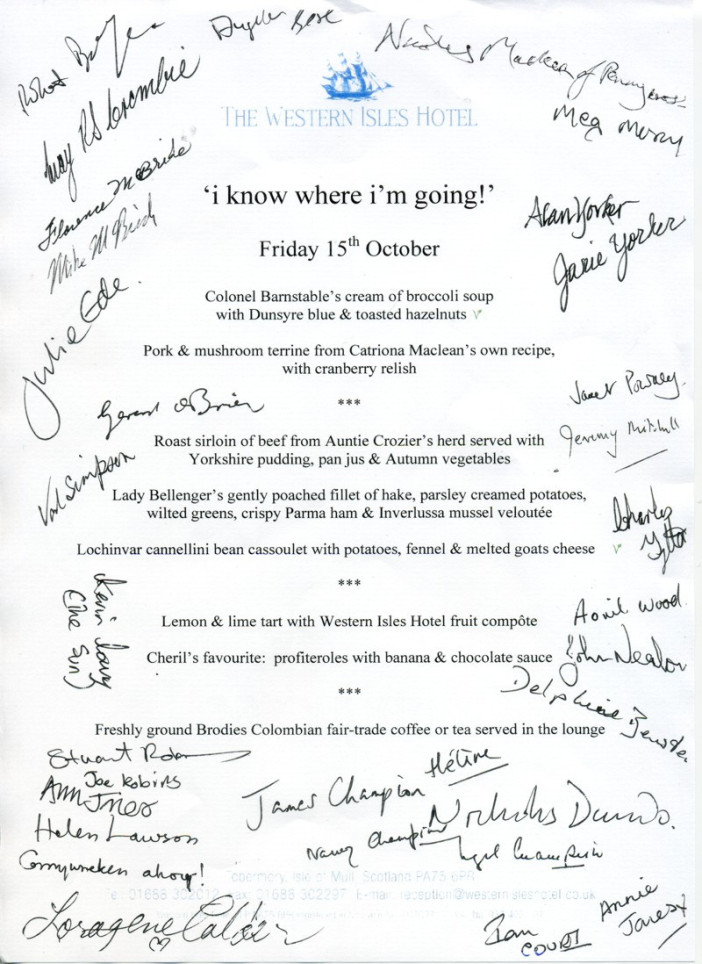 Angela Bese
THE WESTERN ISLES HOTEL
Meg Murray
Florence McBride
Mike McBride
'i know where i'm going!'
Alan Yorker
Janie Yorker
Friday 15th October
Julie Ede.
Colonel Barnstable's cream of broccoli soup
with Dunsyre blue & toasted hazelnuts v
Pork & mushroom terrine from Catriona Maclean's own recipe,
with cranberry relish
Janet Powney.
Gerard O'Brien
***
Jeremy Mitchell
Roast sirloin of beef from Auntie Crozier's herd served with
Yorkshire pudding, pan jus & Autumn vegetables
Val Simpson
Lady Bellenger's gently poached fillet of hake, parsley creamed potatoes,
wilted greens, crispy Parma ham & Inverlussa mussel veloutée
Charles
Lochinvar cannellini bean cassoulet with potatoes, fennel & melted goats cheese v
***
(The Sun)
Lemon & lime tart with Western Isles Hotel fruit compôte
Wood
Cheril's favourite: profiteroles with banana & chocolate sauce
John
***
Delphine
Freshly ground Brodies Colombian fair-trade coffee or tea served in the lounge
Stuart
Hélène
Joe Robins
Ann Jones
James Champion
Nicholas
Helen Lawson
Nancy Champion
Nigel Champion
ahoy!
Tobermory, Isle of Mull, Scotland PA75 6PR
Tel: 01688 302012 Fax: 01688 302297 E-mail: reception@westernisleshotel.co.uk
Annie
Jones x
Ian
COURT